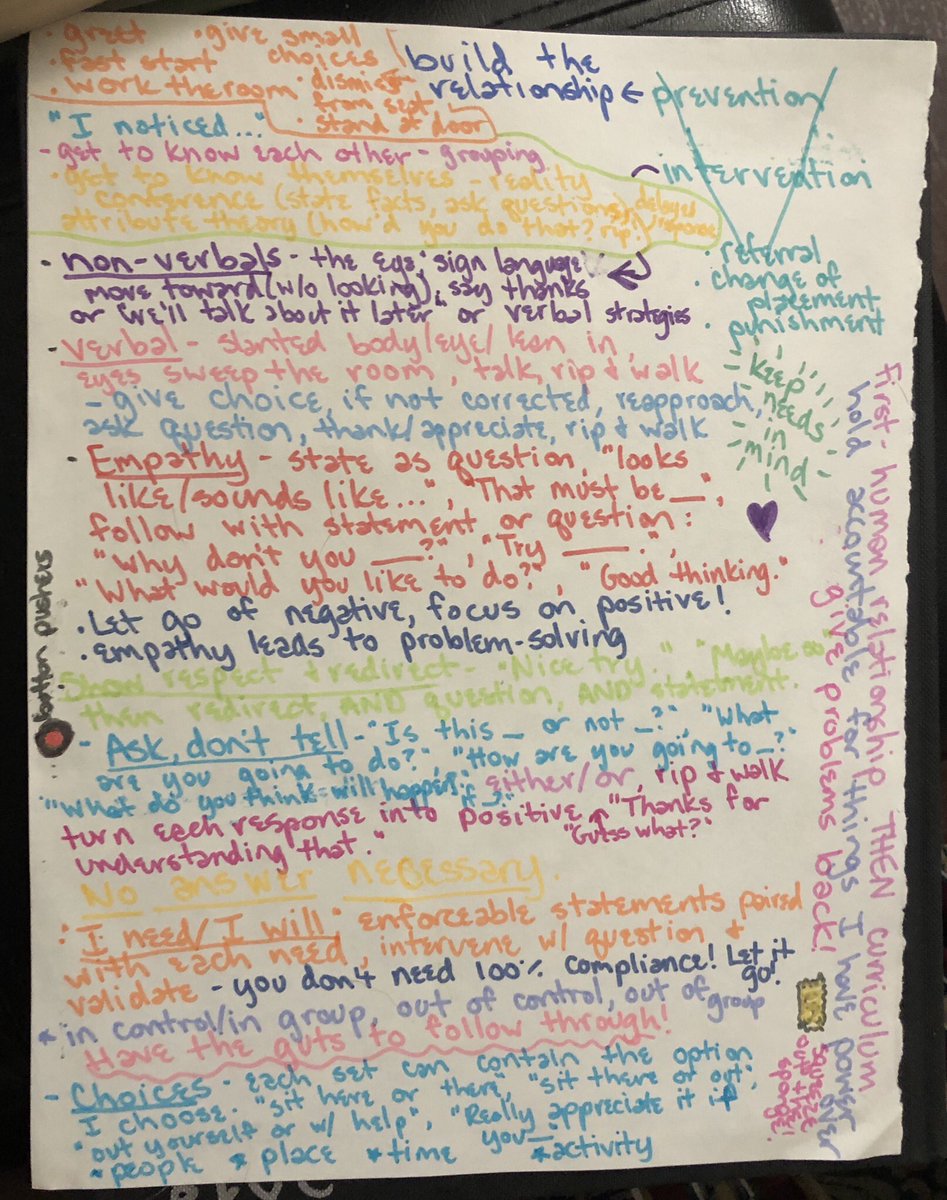 • greet • give small
• fast start choices
• work the room • dismiss
from seat
• stand at door
build the
relationship ← prevention
"I noticed..."
- get to know each other - grouping
• get to know themselves - reality
conference (state facts, ask questions), delayed
attribute theory (how'd you do that? rip!) response
intervention
• referral
• change of
placement
• punishment
• non-verbals - the eye, sign language
move toward (w/o looking), say thanks
or "we'll talk about it later" or verbal strategies
• verbal - slanted body/eye/lean in,
eyes sweep the room, talk, rip & walk
- give choice, if not corrected, reapproach,
ask question, thank/appreciate, rip & walk
keep
needs
in
mind
• Empathy - state as question, "looks
like/sounds like...", "That must be __",
follow with statement or question:
"Why don't you __?", "Try __.",
"What would you like to do?", "Good thinking."
• Let go of negative, focus on positive!
• empathy leads to problem-solving
button pushers
Show respect & redirect - "Nice try." "Maybe so"
then redirect, AND question, AND statement.
- Ask, don't tell - "Is this _ or not _?" "What
are you going to do?", "How are you going to _?"
"What do you think will happen if _?" either/or, rip & walk
turn each response into positive, "Thanks for
understanding that." "Guess what?"
No answer necessary.
• "I need/I will" enforceable statements paired
with each need, intervene w/ question &
validate - you don't need 100% compliance! Let it
go!
* in control/in group, out of control, out of group
Have the guts to follow through!
- Choices - each set can contain the option
I choose. "sit here or there", "sit there or out",
"out yourself or w/ help", "Really appreciate it if
you _."
* people * place * time * activity
First - human relationship THEN curriculum
hold accountable for things I have power over
give problems back!
squeeze
out the
sponge!